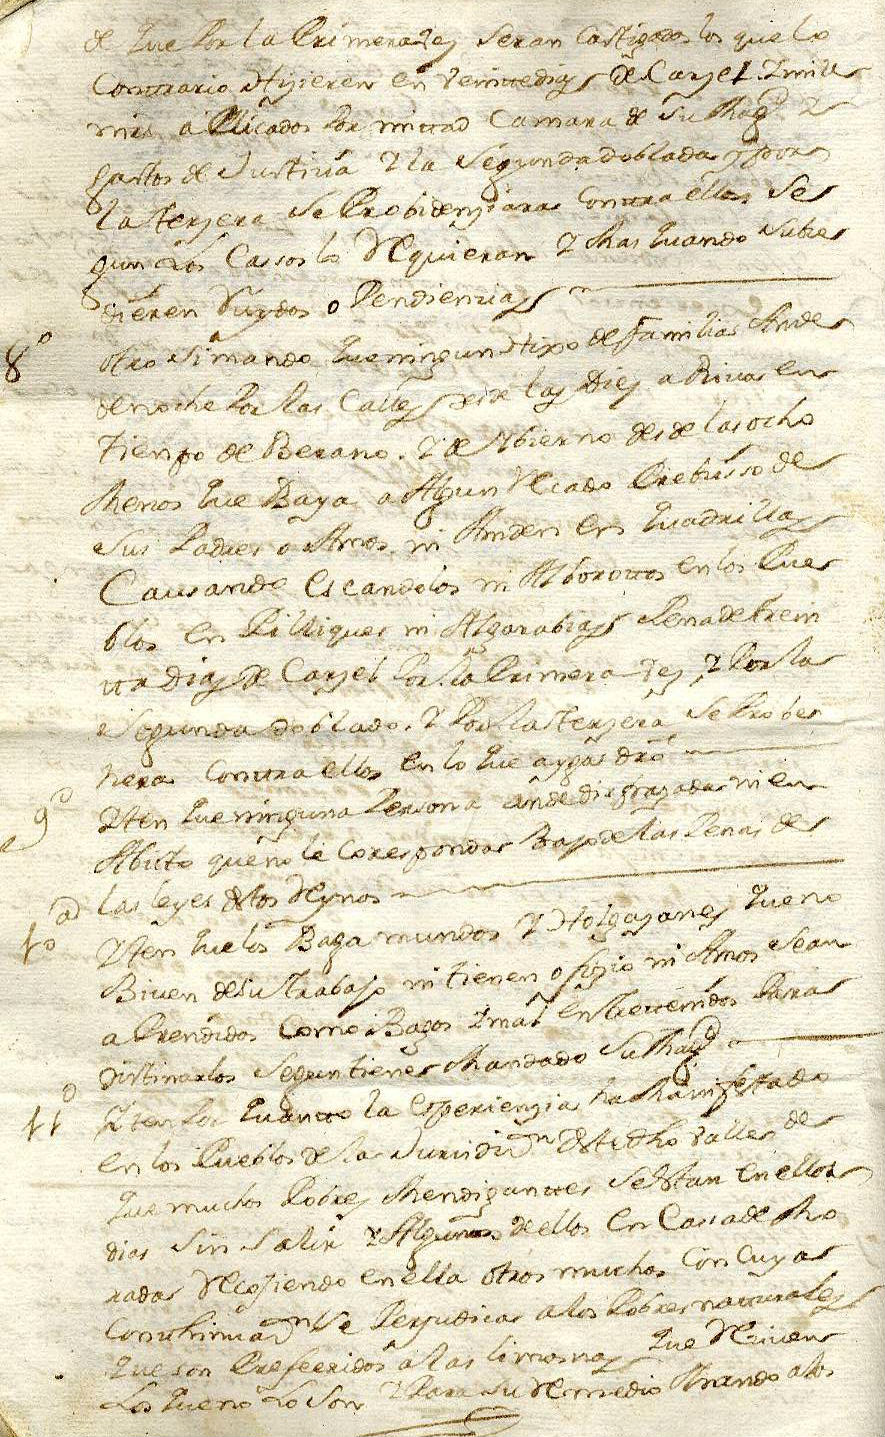 de que por la primera vez seran castigados los que lo
contrario hizieren en veinte dias de carzel
aplicados por mitad camara de su Magd y
gastos de Justicia y la segunda doblada y por
la terzera se probidenziara contra ellos se
gun los cassos lo requieran y mas quando subze
dieren ruydos o pendencias
8º otro si mando que ningun hijo de familias ande
de noche por las calles desde las diez arriva en
tiempo de Berano. y de Ybierno desde las ocho
menos que Baya a algun recado prebisso de
sus Padres o Amos ni anden en quadrillas
Causando escandolos ni Alborottos en los Pue
blos en ni Algarabias Pena de trein
tta dias de Carzel por la primera vez, y por la
segunda doblado. y por la terzera se probe
hera contra ellos en lo que aya drô
9º Yten que ninguna Persona ande disfrazada ni en
Abito que no le coresponda Bajo de las Penas de
las leyes destos Reynos
10 Yten que los Bagamundos y Holgazanes que no
Biven de su trabajo ni tienen ofizio ni Amos sean
aprendidos como Bagos y mal enttretenidos para
distinarlos segun tiene Mandado su Magd
11º Yten por quantto la esperienzia ha Manifestado
en los Pueblos de la Jurisdizn deste dho valle de
que muchos Pobres Mendigantes se estan en ellos
dias sin salir y Algunos de ellos en Casa de Mo
rada recojiendo en ella otros muchos con cuya
conthinuazn se perjudica a los Pobres naturales
que son Prefeeridos a las limosnas que reciven
los que no lo son y para su remedio Mando a los